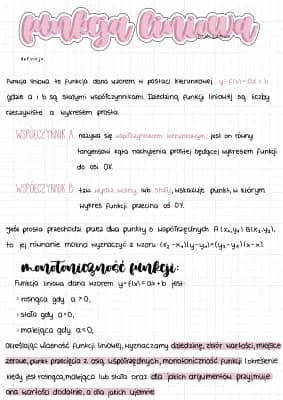 funkcja liniowa
definicja:
Funkcja liniowa to funkcja dana wzorem w postaci kierunkowej y=f(x)=ax+b
gdzie a i b są stałymi współczynnikami. Dziedziną funkcji liniowej są liczby
rzeczywiste a wykresem prosta.
WSPÓŁCZYNNIK A nazywa się współczynnikiem kierunkowym; jest on równy
tangensowi kąta nachylenia prostej będącej wykresem funkcji
do osi OX.
WSPÓŁCZYNNIK B tzw. wyraz wolny lub stały, wskazuje punkt, w którym
wykres funkcji przecina oś OY.
Jeśli prosta przechodzi przez dwa punkty o współrzędnych
to jej równanie można wyznaczyć z wzoru:
monotoniczność funkcji:
Funkcja liniowa dana wzorem y=f(x)=ax+b jest:
· rosnąca gdy a>0,
· stała gdy a=0,
· malejąca gdy a<0,
Określając własność funkcji liniowej, wyznaczamy dziedzinę, zbiór wartości, miejsce
zerowe, punkt przecięcia z osią współrzędnych, monotoniczność funkcji (określenie
kiedy jest rosnąca, malejąca lub stała oraz dla jakich argumentów przyjmuje
ona wartości dodatnie, a dla jakich ujemne